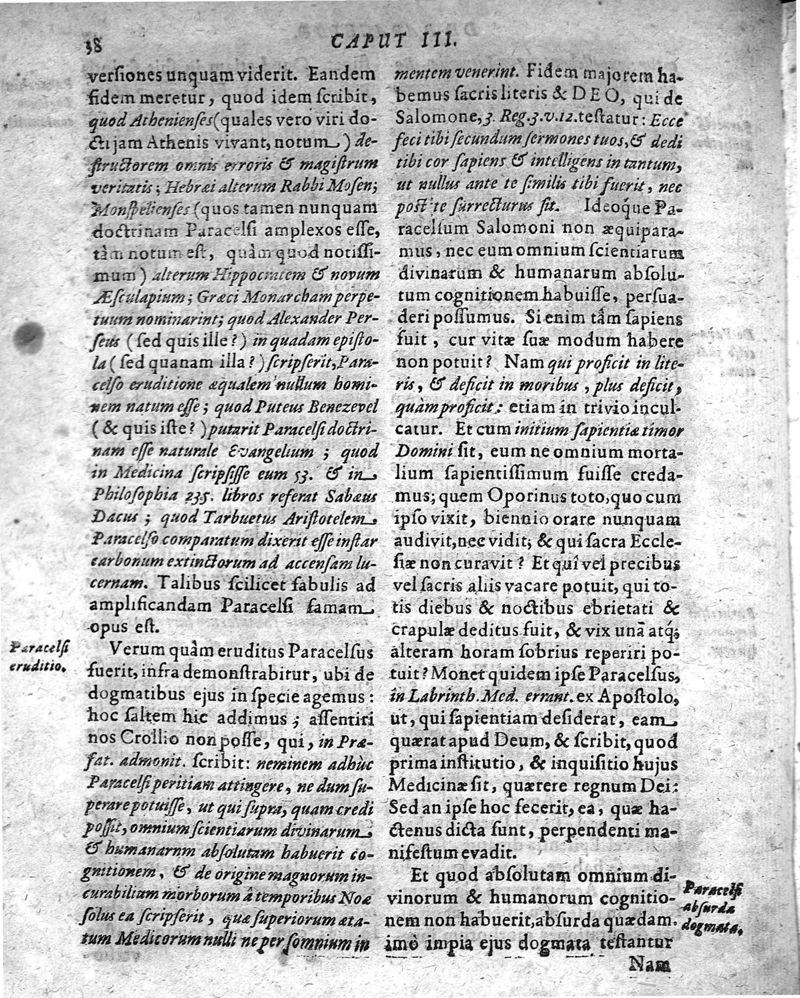 38
CAPUT III.
versiones unquam viderit. Eandem
fidem meretur, quod idem scribit,
quod Athenienses (quales vero viri do-
cti jam Athenis vivant, notum) de-
structorem omnis erroris & magistrum
veritatis; Hebræi alterum Rabbi Mosen;
Monspelienses (quos tamen nunquam
doctrinam Paracelsi amplexos esse,
tàm notum est, quàm quod notissi-
mum) alterum Hippocratem & novum
Æsculapium; Græci Monarcham perpe-
tuum nominarint; quod Alexander Per-
seus (sed quis ille?) in quadam episto-
la (sed quanam illa?) scripserit, Para-
celso eruditione æqualem nullum homi-
nem natum esse; quod Puteus Benezevel
(& quis iste?) putarit Paracelsi doctri-
nam esse naturale Evangelium; quod
in Medicina scripsisse eum 53. & in
Philosophia 235. libros referat Sabæus
Dacus; quod Tarbuetus Aristotelem
Paracelso comparatum dixerit esse instar
carbonum extinctorum ad accensam lu-
cernam. Talibus scilicet fabulis ad
amplificandam Paracelsi famam
opus est.
Paracelsi
eruditio.
Verum quàm eruditus Paracelsus
fuerit, infra demonstrabitur, ubi de
dogmatibus ejus in specie agemus:
hoc saltem hic addimus; assentiri
nos Crollio non posse, qui, in Præ-
fat. admonit. scribit: neminem adhùc
Paracelsi peritiam attingere, ne dum su-
perare potuisse, ut qui supra, quam credi
possit, omnium scientiarum divinarum
& humanarum absolutam habuerit co-
gnitionem, & de origine magnorum in-
curabilium morborum à temporibus Noæ
solus ea scripserit, quæ superiorum æta-
tum Medicorum nulli ne per somnium in
mentem venerint. Fidem majorem ha-
bemus sacris literis & DEO, qui de
Salomone, 3. Reg. 3. v. 12. testatur: Ecce
feci tibi secundum sermones tuos, & dedi
tibi cor sapiens & intelligens in tantum,
ut nullus ante te similis tibi fuerit, nec
post te surrecturus sit. Ideoque Pa-
racelsum Salomoni non æquipara-
mus, nec eum omnium scientiarum
divinarum & humanarum absolu-
tum cognitionem habuisse, persua-
deri possumus. Si enim tàm sapiens
fuit, cur vitæ suæ modum habere
non potuit? Nam qui proficit in lite-
ris, & deficit in moribus, plus deficit,
quàm proficit: etiam in trivio incul-
catur. Et cum initium sapientiæ timor
Domini sit, eum ne omnium morta-
lium sapientissimum fuisse creda-
mus; quem Oporinus toto, quo cum
ipso vixit, biennio orare nunquam
audivit, nec vidit; & qui sacra Eccle-
siæ non curavit? Et quî vel precibus
vel sacris aliis vacare potuit, qui to-
tis diebus & noctibus ebrietati &
crapulæ deditus fuit, & vix unâ atq;
alteram horam sobrius reperiri po-
tuit? Monet quidem ipse Paracelsus,
in Labrinth. Med. errant. ex Apostolo,
ut, qui sapientiam desiderat, eam
quærat apud Deum, & scribit, quod
prima institutio, & inquisitio hujus
Medicinæ sit, quærere regnum Dei:
Sed an ipse hoc fecerit, ea, quæ ha-
ctenus dicta sunt, perpendenti ma-
nifestum evadit.
Et quod absolutam omnium di-
vinorum & humanorum cognitio-
nem non habuerit, absurda quædam,
imò impia ejus dogmata testantur
Paracelsi
absurda
dogmata.
Nam